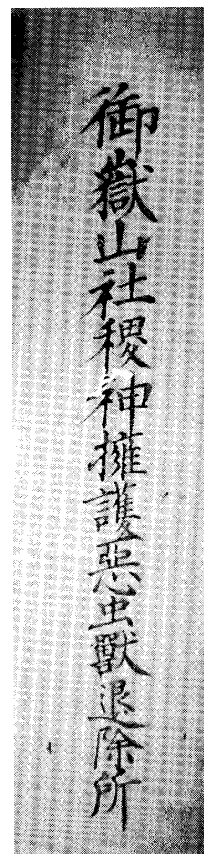 御嶽山社稷神擁護惡虫獸退除所